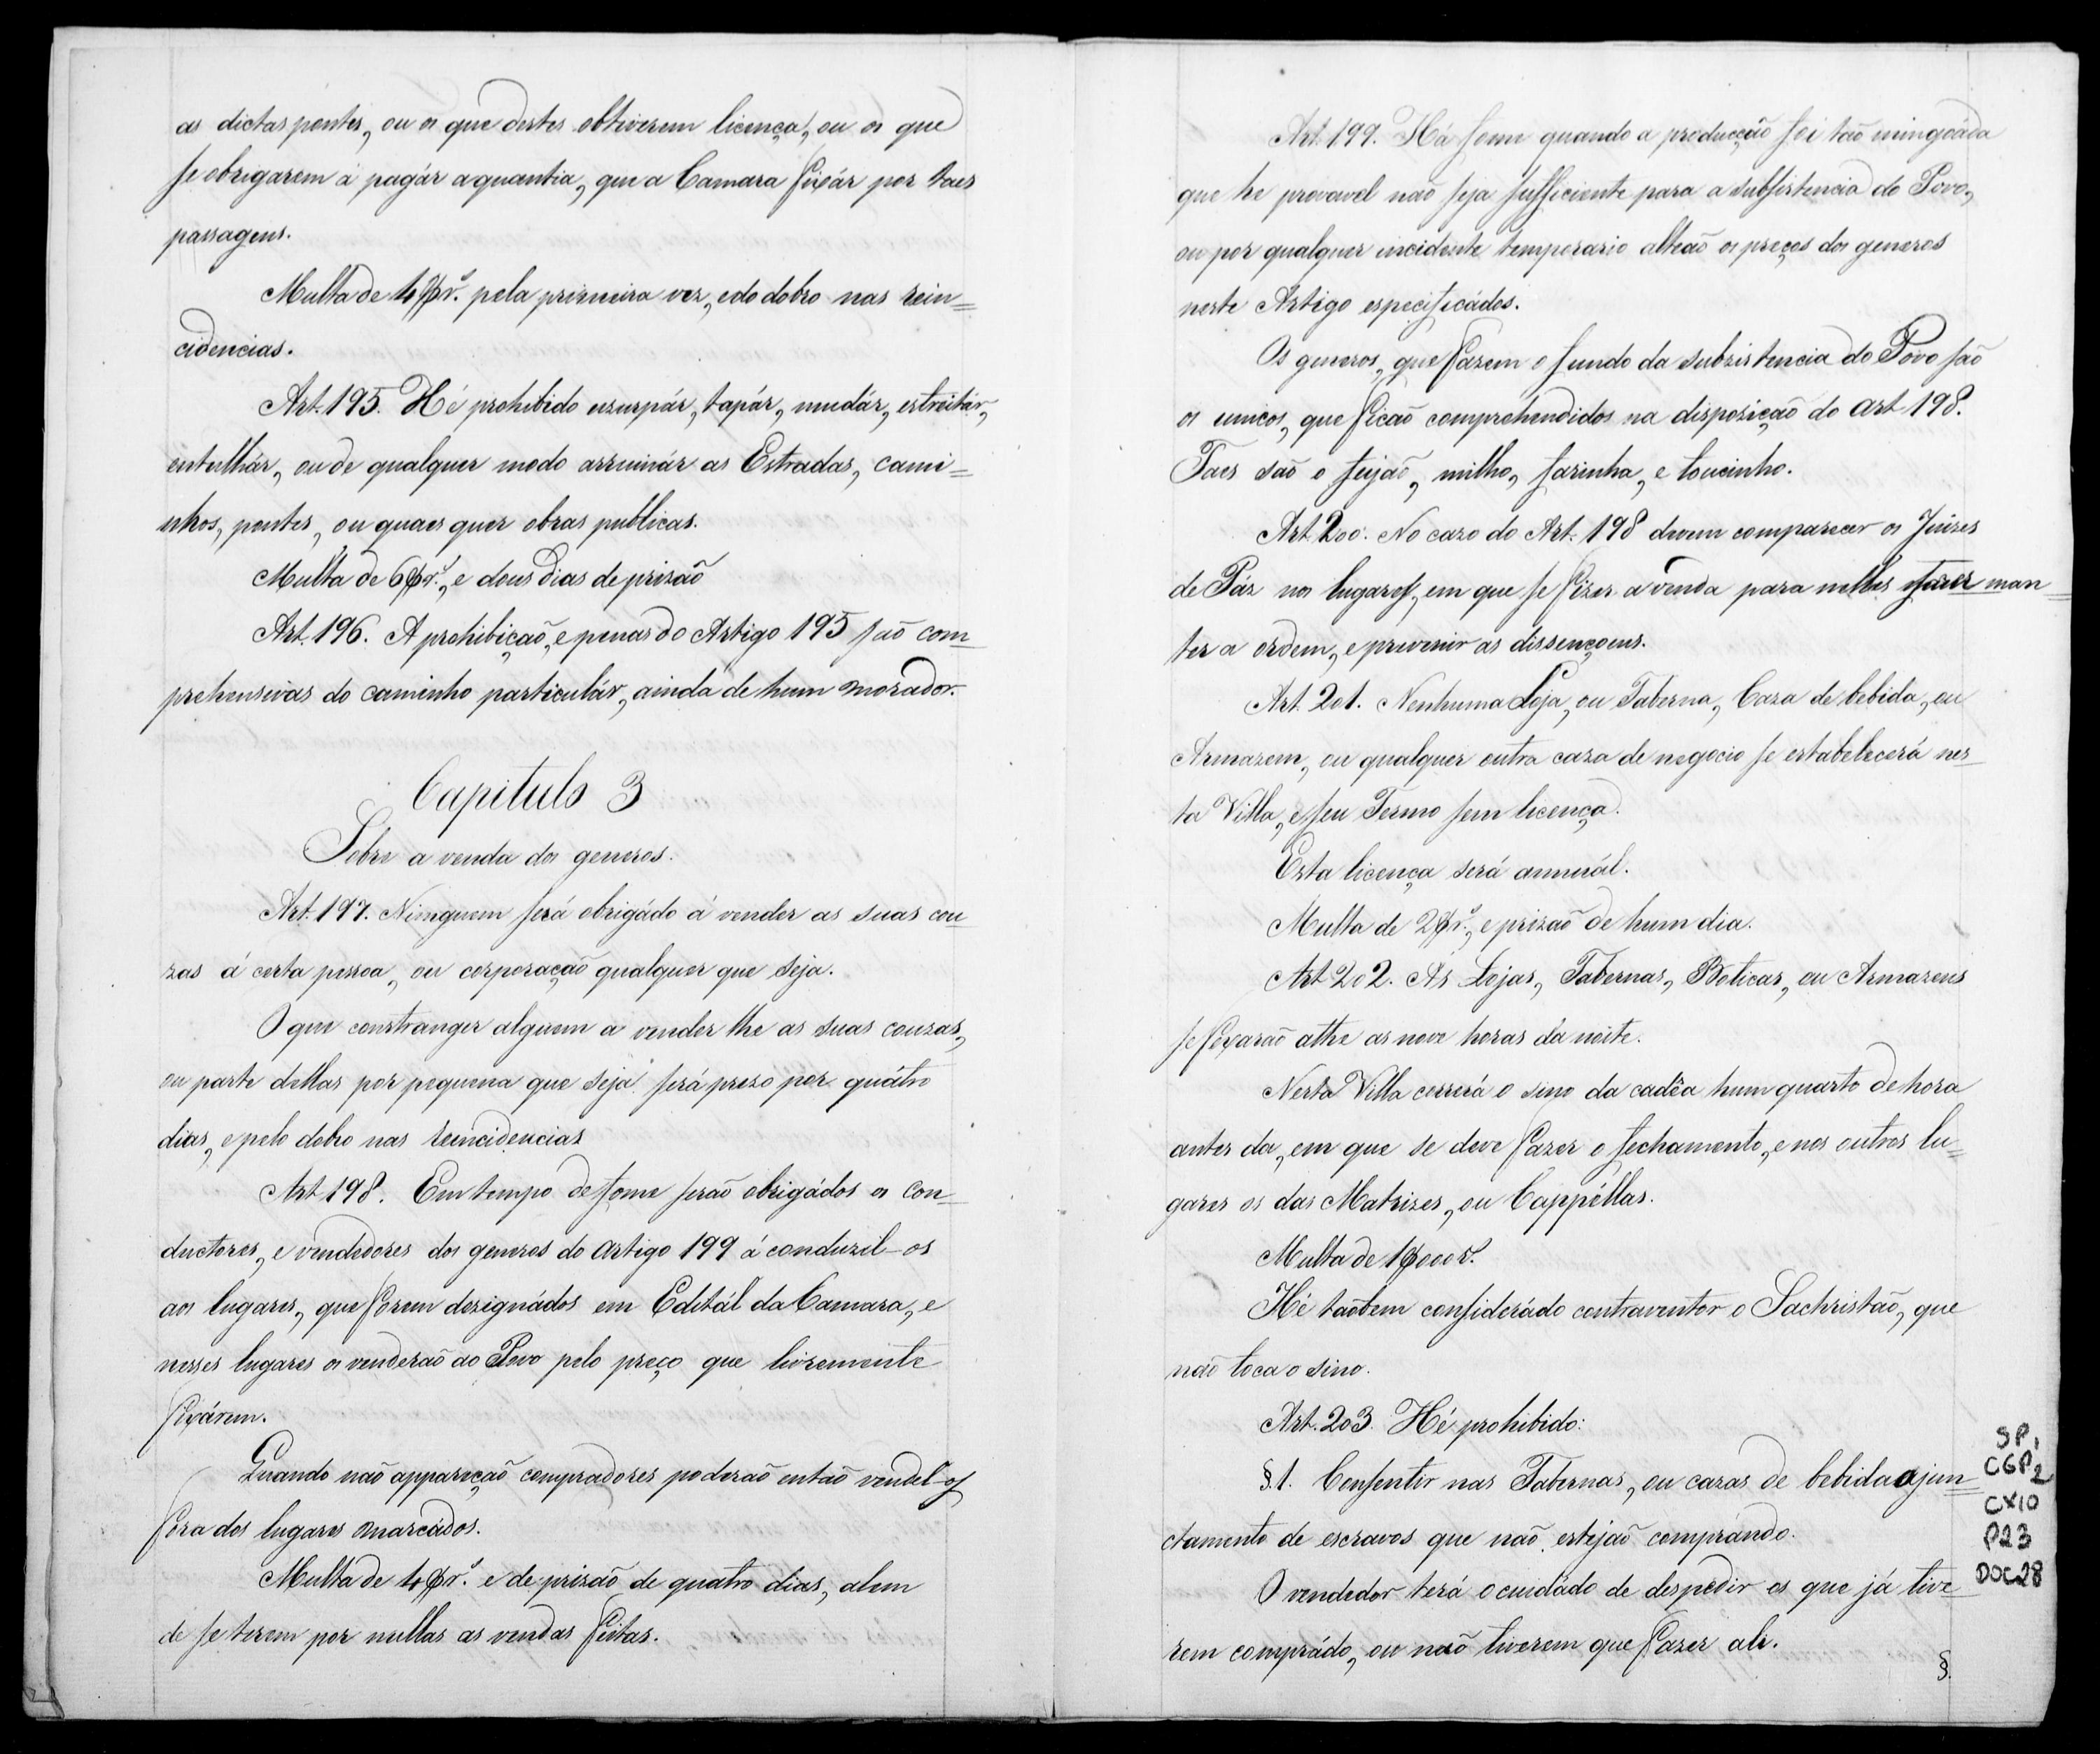 as dictas pontes, ou os que destes obtiverem licença, ou os que
se obrigarem á pagár a quantia, que a Camara fixár por taes
passagens.
Multa de 4$r.s pela primeira vez, e do dobro nas rein=
cidencias.
Art. 195. Hé prohibido uzurpár, tapár, mudár, estreitár,
entulhár, ou de qualquer modo arruinár as Estradas, cami=
nhos, pontes, ou quaes quer obras publicas.
Multa de 6$r.s, e dous dias de prizaõ
Art. 196. A prohibiçaõ, e penas do Artigo 195 saõ com=
prehensivas do caminho particulár, ainda de hum morador.
Capitulo 3
Sobre a venda dos generos.
Art. 197. Ninguem será obrigádo á vender as suas cou=
zas á certa pessoa, ou corporaçaõ qualquer que seja.
O que constranger alguem a vender lhe as suas couzas,
ou parte dellas por pequena que seja será prezo por quátro
dias, e pelo dobro nas reincidencias
Art. 198. Em tempo de fome seraõ obrigádos os con=
ductores, e vendedores dos generos do artigo 199 á conduzil-os
aos lugares, que forem dezignádos em Editál da Camara, e
nesses lugares os venderaõ ao Povo pelo preço que livremente
fixárem.
Quando naõ appareçaõ compradores poderaõ entaõ vendel-os
fora dos lugares marcádos.
Multa de 4$r.s e de prizaõ de quatro dias, alem
de se terem por nullas as vendas feitas.
Art. 199. Há fome quando a producçaõ foi taõ mingoáda
que he provavel naõ seja sufficiente para a subsistencia do Povo,
ou por qualquer incidente temporario alteaõ os preços dos generos
neste Artigo especificádos.
Os generos, que fazem o fundo da subzistencia do Povo saõ
os unicos, que ficaõ comprehendidos na dispoziçaõ do art 198.
Taes saõ o feijaõ, milho, farinha, e toucinho.
Art. 200. No cazo do Art. 198 devem comparecer os Juizes
de Páz nos lugares, em que se fizer a venda para nelles fazer man=
ter a ordem, e prevenir as dissençoens.
Art. 201. Nenhuma Loja, ou Taberna, Caza de bebida, ou
Armazem, ou qualquer outra caza de negocio se estabelecerá nes=
ta Villa, e seu Termo sem licença.
Esta licença será annuál.
Multa de 2$r.s, e prizaõ de hum dia.
Art. 202. As Lojas, Tabernas, Boticas, ou Armazens
se fixaraõ athe as nove horas da noite.
Nesta Villa correrá o sino da cadêa hum quarto de hora
antes da, em que se deve fazer o fechamento, e nos outros lu=
gares os das Matrizes, ou Cappéllas.
Multa de 1$000r.s
Hé taõbem considerádo contraventor o Sachristaõ, que
naõ toca o sino.
Art. 203. Hé prohibido:
§.1. Consentir nas Tabernas, ou cazas de bebida ajun=
ctamento de escravos que naõ estejaõ comprándo.
O vendedor terá o cuidádo de despedir os que já tive=
rem comprádo, ou naõ tiverem que fazer ali.
§.
SP1
CGP2
CX10
P23
DOC28